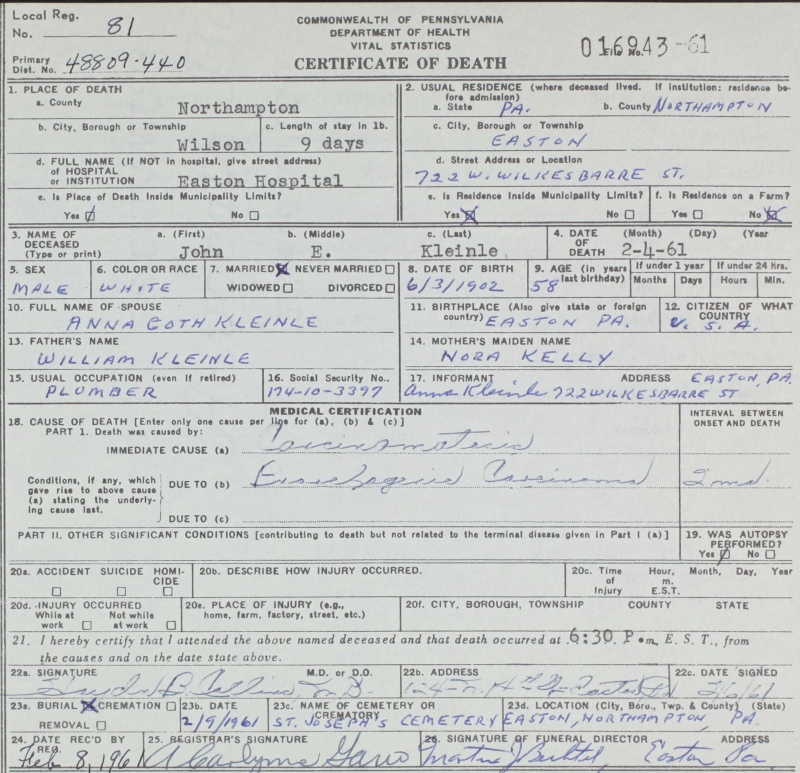 Local Reg. No. 81
COMMONWEALTH OF PENNSYLVANIA
DEPARTMENT OF HEALTH
VITAL STATISTICS
CERTIFICATE OF DEATH
File No. 016943-61
Primary Dist. No. 48809-440
1. PLACE OF DEATH
a. County Northampton
b. City, Borough or Township Wilson
c. Length of stay in 1b. 9 days
d. FULL NAME (If NOT in hospital, give street address) of HOSPITAL or INSTITUTION Easton Hospital
e. Is Place of Death Inside Municipality Limits?
Yes ☑ No ☐
2. USUAL RESIDENCE (where deceased lived. If institution: residence before admission)
a. State PA. b. County NORTHAMPTON
c. City, Borough or Township
EASTON
d. Street Address or Location
722 W. WILKESBARRE ST.
e. Is Residence Inside Municipality Limits? f. Is Residence on a Farm?
Yes ☒ No ☐ Yes ☐ No ☒
3. NAME OF DECEASED (Type or print) a. (First) John b. (Middle) E. c. (Last) Kleinle
4. DATE OF DEATH (Month) (Day) (Year 2-4-61
5. SEX MALE
6. COLOR OR RACE WHITE
7. MARRIED ☒ NEVER MARRIED ☐
WIDOWED ☐ DIVORCED ☐
8. DATE OF BIRTH 6/3/1902
9. AGE (in years last birthday) 58
If under 1 year Months Days
If under 24 Hrs. Hours Min.
10. FULL NAME OF SPOUSE
ANNA GOTH KLEINLE
11. BIRTHPLACE (Also give state or foreign country) EASTON PA.
12. CITIZEN OF WHAT COUNTRY U.S.A.
13. FATHER'S NAME
WILLIAM KLEINLE
14. MOTHER'S MAIDEN NAME
NORA KELLY
15. USUAL OCCUPATION (even if retired)
PLUMBER
16. Social Security No..
174-10-3397
17. INFORMANT ADDRESS EASTON, PA.
Anna Kleinle 722 WILKESBARRE ST
MEDICAL CERTIFICATION
18. CAUSE OF DEATH [Enter only one cause per line for (a), (b) & (c)]
INTERVAL BETWEEN ONSET AND DEATH
PART 1. Death was caused by:
IMMEDIATE CAUSE (a)
Conditions, if any, which gave rise to above cause (a) stating the underlying cause last.
DUE TO (b) Carcinoma 2 mo.
DUE TO (c)
PART II. OTHER SIGNIFICANT CONDITIONS [contributing to death but not related to the terminal disease given in Part I (a)]
19. WAS AUTOPSY PERFORMED?
Yes ☑ No ☐
20a. ACCIDENT SUICIDE HOMICIDE
☐ ☐ ☐
20b. DESCRIBE HOW INJURY OCCURRED.
20c. Time of Injury Hour, m. E.S.T. Month, Day, Year
20d. INJURY OCCURRED
While at work ☐ Not while at work ☐
20e. PLACE OF INJURY (e.g., home, farm, factory, street, etc.)
20f. CITY, BOROUGH, TOWNSHIP COUNTY STATE
21. I hereby certify that I attended the above named deceased and that death occurred at 6:30 P.m, E. S. T., from
the causes and on the date state above.
22a. SIGNATURE M.D. or D.O.
M.D.
22b. ADDRESS
22c. DATE SIGNED
23a. BURIAL ☒ CREMATION ☐
REMOVAL ☐
23b. DATE
2/9/1961
23c. NAME OF CEMETERY OR CREMATORY
ST. JOSEPH'S CEMETERY
23d. LOCATION (City, Boro., Twp. & County) (State)
EASTON, NORTHAMPTON, PA.
24. DATE REC'D BY REG.
Feb. 8, 1961
25. REGISTRAR'S SIGNATURE
26. SIGNATURE OF FUNERAL DIRECTOR ADDRESS
Easton Pa